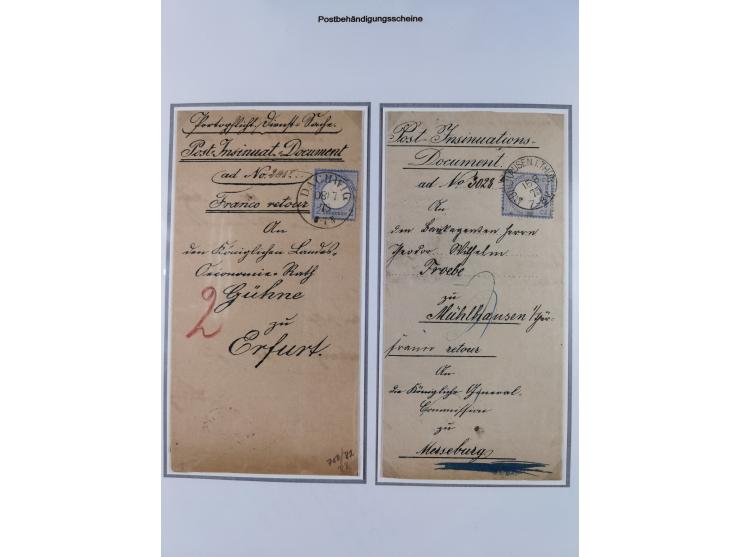 Postbehändigungsscheine
Portopflicht. Dienst-Sache.
Post-Insinuat.-Document
ad No.
Franco retour
An
den Königlichen Landes-
Oeconomie-Rath
Gühne
zu
Erfurt.
2
Post-Insinuations-
Document.
ad No. 3028
An
den Bankagenten Herrn
Theodor Wilhelm
Froebe
zu
Mühlhausen i/Thür
franco retour
An
die Königliche General-
Commission
zu
Merseburg